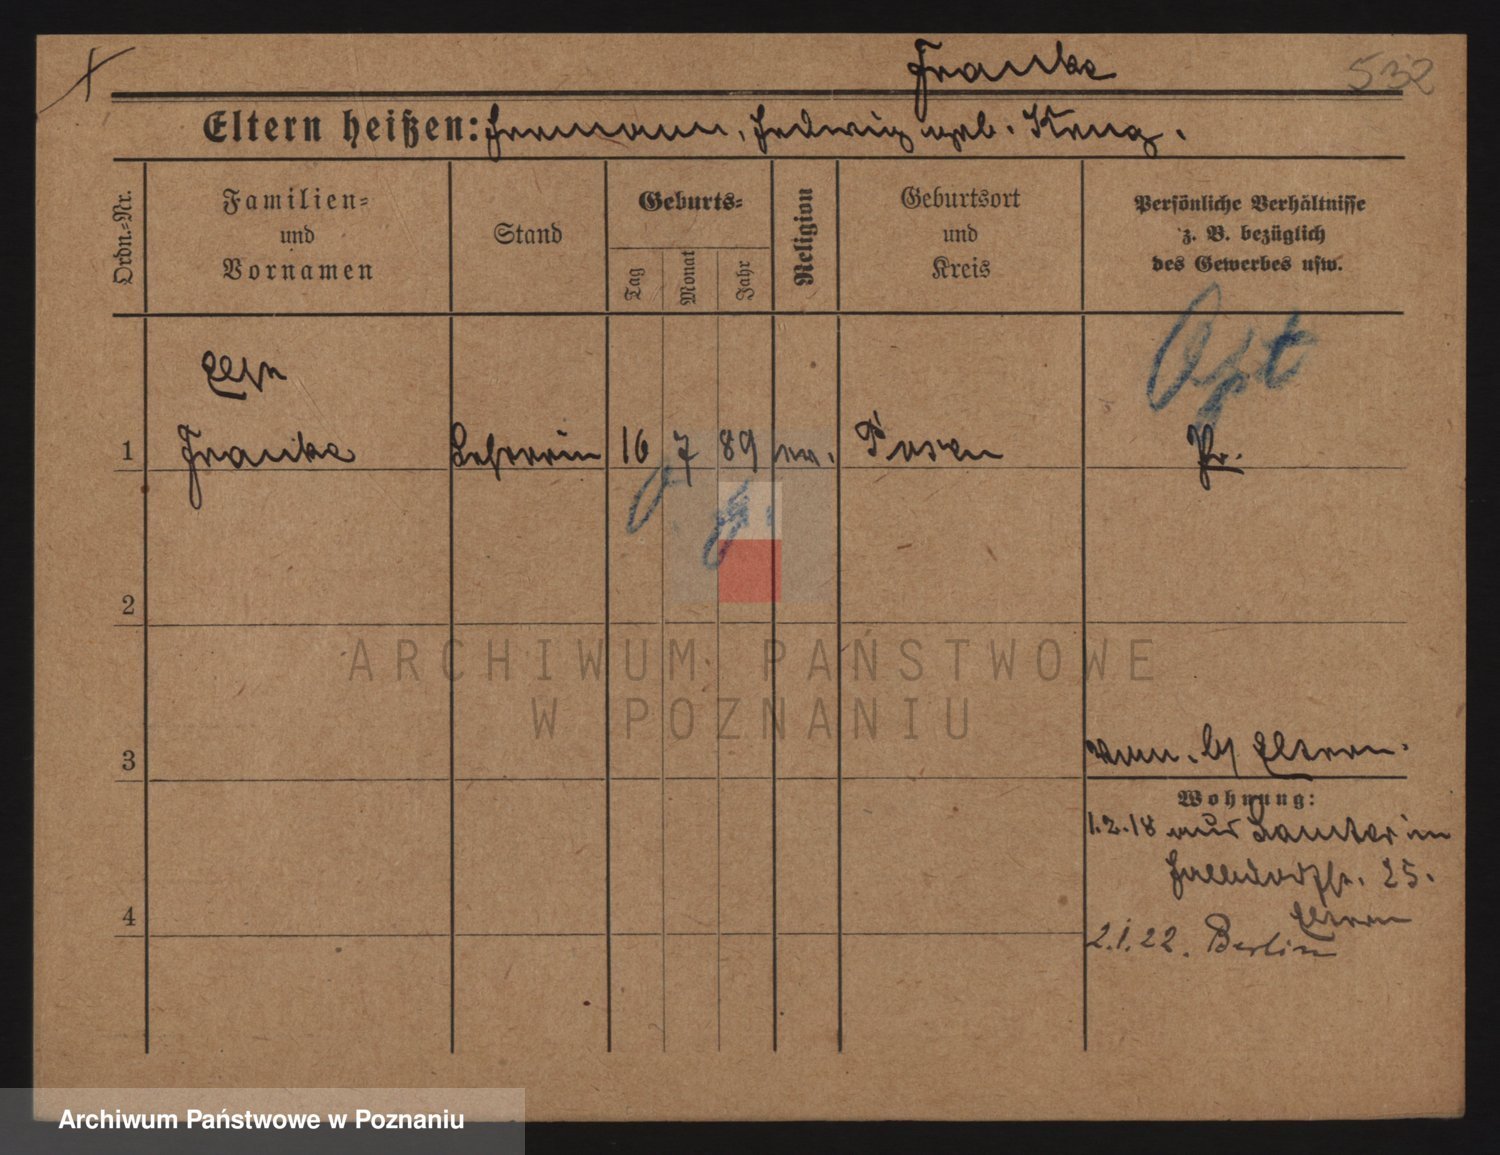 Franke
532
Eltern heißen: Hermann, Hedwig geb. Krug.
Ordn.-Nr.
Familien-
und
Vornamen
Stand
Geburts-
Tag
Monat
Jahr
Religion
Geburtsort
und
Kreis
Persönliche Verhältnisse
z. B. bezüglich
des Gewerbes usw.
Opt
Else
1 Franke Lehrerin 16 7 89 ev. Posen Pr.
2
3
b/ Eltern.
Wohnung:
1.2.18 in
25.
Eltern
4
2.1.22. Berlin
ARCHIWUM PAŃSTWOWE
W POZNANIU
Archiwum Państwowe w Poznaniu